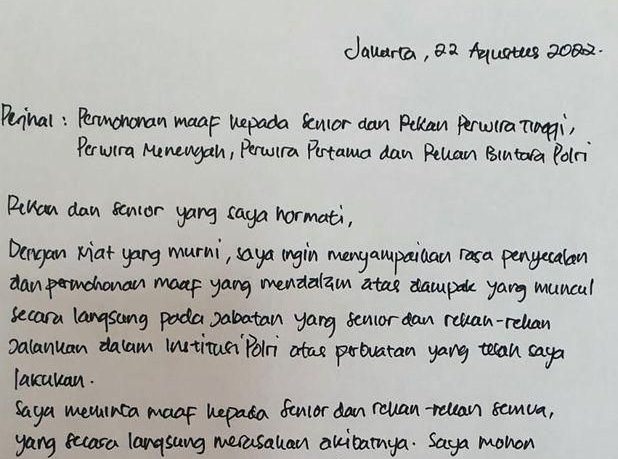 Jakarta, 22 Agustus 2022.
Perihal : Permohonan maaf kepada Senior dan Rekan Perwira Tinggi,
Perwira Menengah, Perwira Pertama dan Rekan Bintara Polri
Rekan dan Senior yang saya hormati,
Dengan niat yang murni, saya ingin menyampaikan rasa penyesalan
dan permohonan maaf yang mendalam atas dampak yang muncul
secara langsung pada Jabatan yang senior dan rekan-rekan
Jalankan dalam Institusi Polri atas perbuatan yang telah saya
lakukan.
Saya meminta maaf kepada Senior dan rekan-rekan semua,
yang secara langsung merasakan akibatnya. Saya mohon